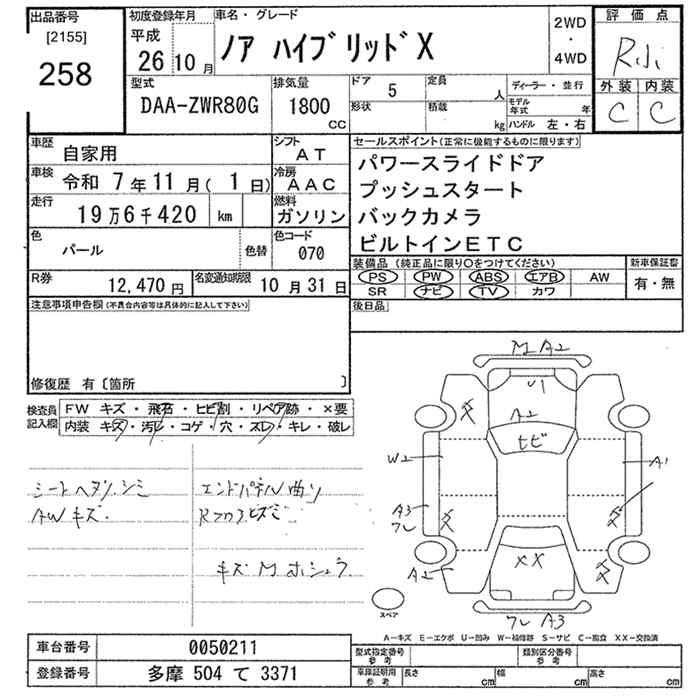 出品番号
[2155]
258
初度登録年月
平成
26 10 月
車名・グレード
ノア ハイブリッドX
2WD
・
4WD
評価点
外装 内装
C C
型式
DAA-ZWR80G
排気量
1800
CC
ドア 5
定員 人
形状
積載 kg
ディーラー・並行
モデル年式 年
ハンドル 左・右
車歴 自家用
シフト AT
車検 令和 7年11月( 1日)
冷房 AAC
走行 19万6千420 km
燃料 ガソリン
色 パール 色替
色コード 070
R券 12,470円
名変通知期限 10月31日
セールスポイント(正常に機能するものに限ります)
パワースライドドア
プッシュスタート
バックカメラ
ビルトインETC
装備品(純正品に限り○をつけてください)
新車保証書
PS PW ABS エアB AW
有・無
SR ナビ TV カワ
後日品
注意事項申告欄(不具合内容等は具体的に記入して下さい)
修復歴 有〔箇所 〕
検査員記入欄
FW キズ・飛石・ヒビ割・リペア跡・×要
内装 キズ・汚レ・コゲ・穴・スレ・キレ・破レ
シートヘタリ.シミ
AWキズ.
エンドパネル曲リ
キズMホシュウ
M A2
A2
ヒビ
W2
A1
A3
フレ
A2
XX
フレ A3
スペア
A-キズ E-エクボ U-凹み W-補修跡 S-サビ C-腐食 XX-交換済
車台番号 0050211
登録番号 多摩 504 て 3371
型式指定番号
参考
類別区分番号
参考
車庫証明用
参考
長さ cm 幅 cm 高さ cm